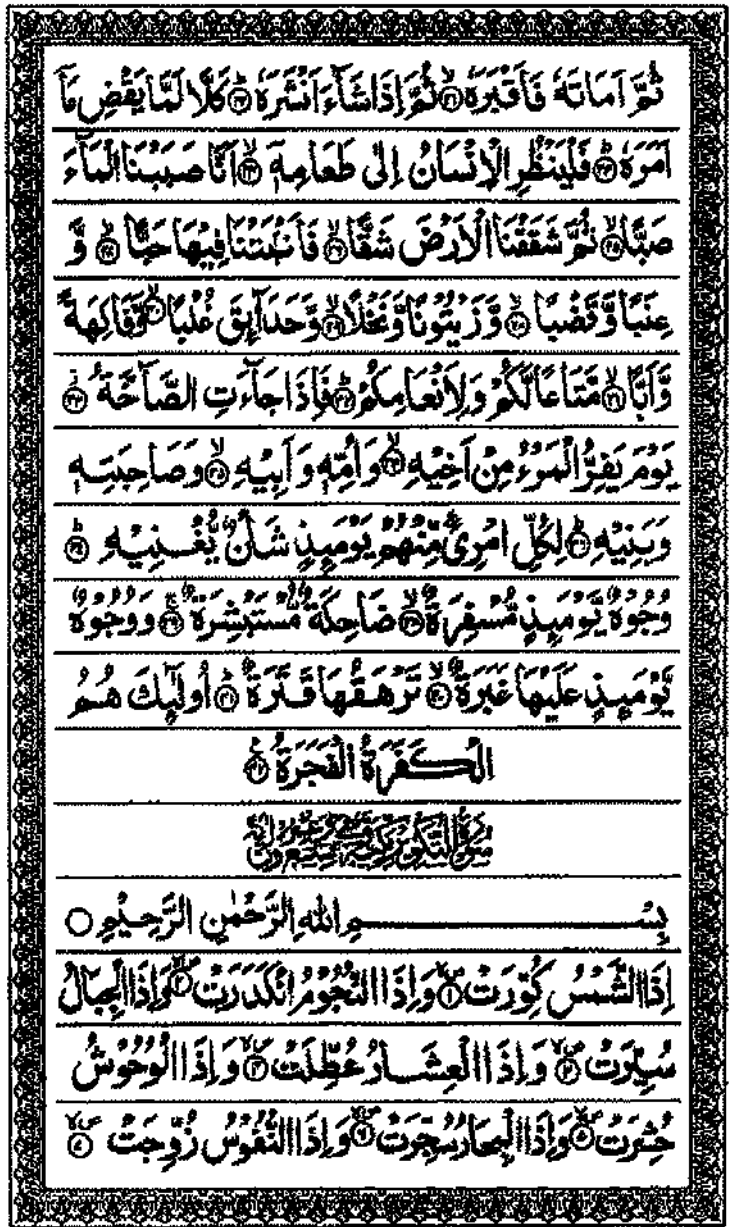 ثُمَّ اَمَاتَهٗ فَاَقْبَرَهٗ ۙ﴿۲۱﴾ ثُمَّ اِذَا شَآءَ اَنْشَرَهٗ ؕ﴿۲۲﴾ كَلَّا لَمَّا يَقْضِ مَاۤ
اَمَرَهٗ ؕ﴿۲۳﴾ فَلْيَنْظُرِ الْاِنْسَانُ اِلٰى طَعَامِهٖۤ ۙ﴿۲۴﴾ اَنَّا صَبَبْنَا الْمَآءَ
صَبًّا ۙ﴿۲۵﴾ ثُمَّ شَقَقْنَا الْاَرْضَ شَقًّا ۙ﴿۲۶﴾ فَاَنْۢبَتْنَا فِيْهَا حَبًّا ۙ﴿۲۷﴾ وَّ
عِنَبًا وَّقَضْبًا ۙ﴿۲۸﴾ وَّزَيْتُوْنًا وَّنَخْلًا ۙ﴿۲۹﴾ وَّحَدَآئِقَ غُلْبًا ۙ﴿۳۰﴾ وَّفَاكِهَةً
وَّاَبًّا ۙ﴿۳۱﴾ مَّتَاعًا لَّكُمْ وَلِاَنْعَامِكُمْ ؕ﴿۳۲﴾ فَاِذَا جَآءَتِ الصَّآخَّةُ ؗ﴿۳۳﴾
يَوْمَ يَفِرُّ الْمَرْءُ مِنْ اَخِيْهِ ۙ﴿۳۴﴾ وَاُمِّهٖ وَاَبِيْهِ ۙ﴿۳۵﴾ وَصَاحِبَتِهٖ
وَبَنِيْهِ ؕ﴿۳۶﴾ لِكُلِّ امْرِئٍ مِّنْهُمْ يَوْمَئِذٍ شَاْنٌ يُّغْنِيْهِ ؕ﴿۳۷﴾
وُجُوْهٌ يَّوْمَئِذٍ مُّسْفِرَةٌ ۙ﴿۳۸﴾ ضَاحِكَةٌ مُّسْتَبْشِرَةٌ ۚ﴿۳۹﴾ وَوُجُوْهٌ
يَّوْمَئِذٍ عَلَيْهَا غَبَرَةٌ ۙ﴿۴۰﴾ تَرْهَقُهَا قَتَرَةٌ ؕ﴿۴۱﴾ اُولٰٓئِكَ هُمُ
الْكَفَرَةُ الْفَجَرَةُ ﴿۴۲﴾
سُوْرَةُ التَّكْوِيْرِ مَكِّيَّةٌ
بِسْمِ اللّٰهِ الرَّحْمٰنِ الرَّحِيْمِ
اِذَا الشَّمْسُ كُوِّرَتْ ۪ۙ﴿۱﴾ وَاِذَا النُّجُوْمُ انْكَدَرَتْ ۪ۙ﴿۲﴾ وَاِذَا الْجِبَالُ
سُيِّرَتْ ۪ۙ﴿۳﴾ وَاِذَا الْعِشَارُ عُطِّلَتْ ۪ۙ﴿۴﴾ وَاِذَا الْوُحُوْشُ
حُشِرَتْ ۪ۙ﴿۵﴾ وَاِذَا الْبِحَارُ سُجِّرَتْ ۪ۙ﴿۶﴾ وَاِذَا النُّفُوْسُ زُوِّجَتْ ۪ۙ﴿۷﴾